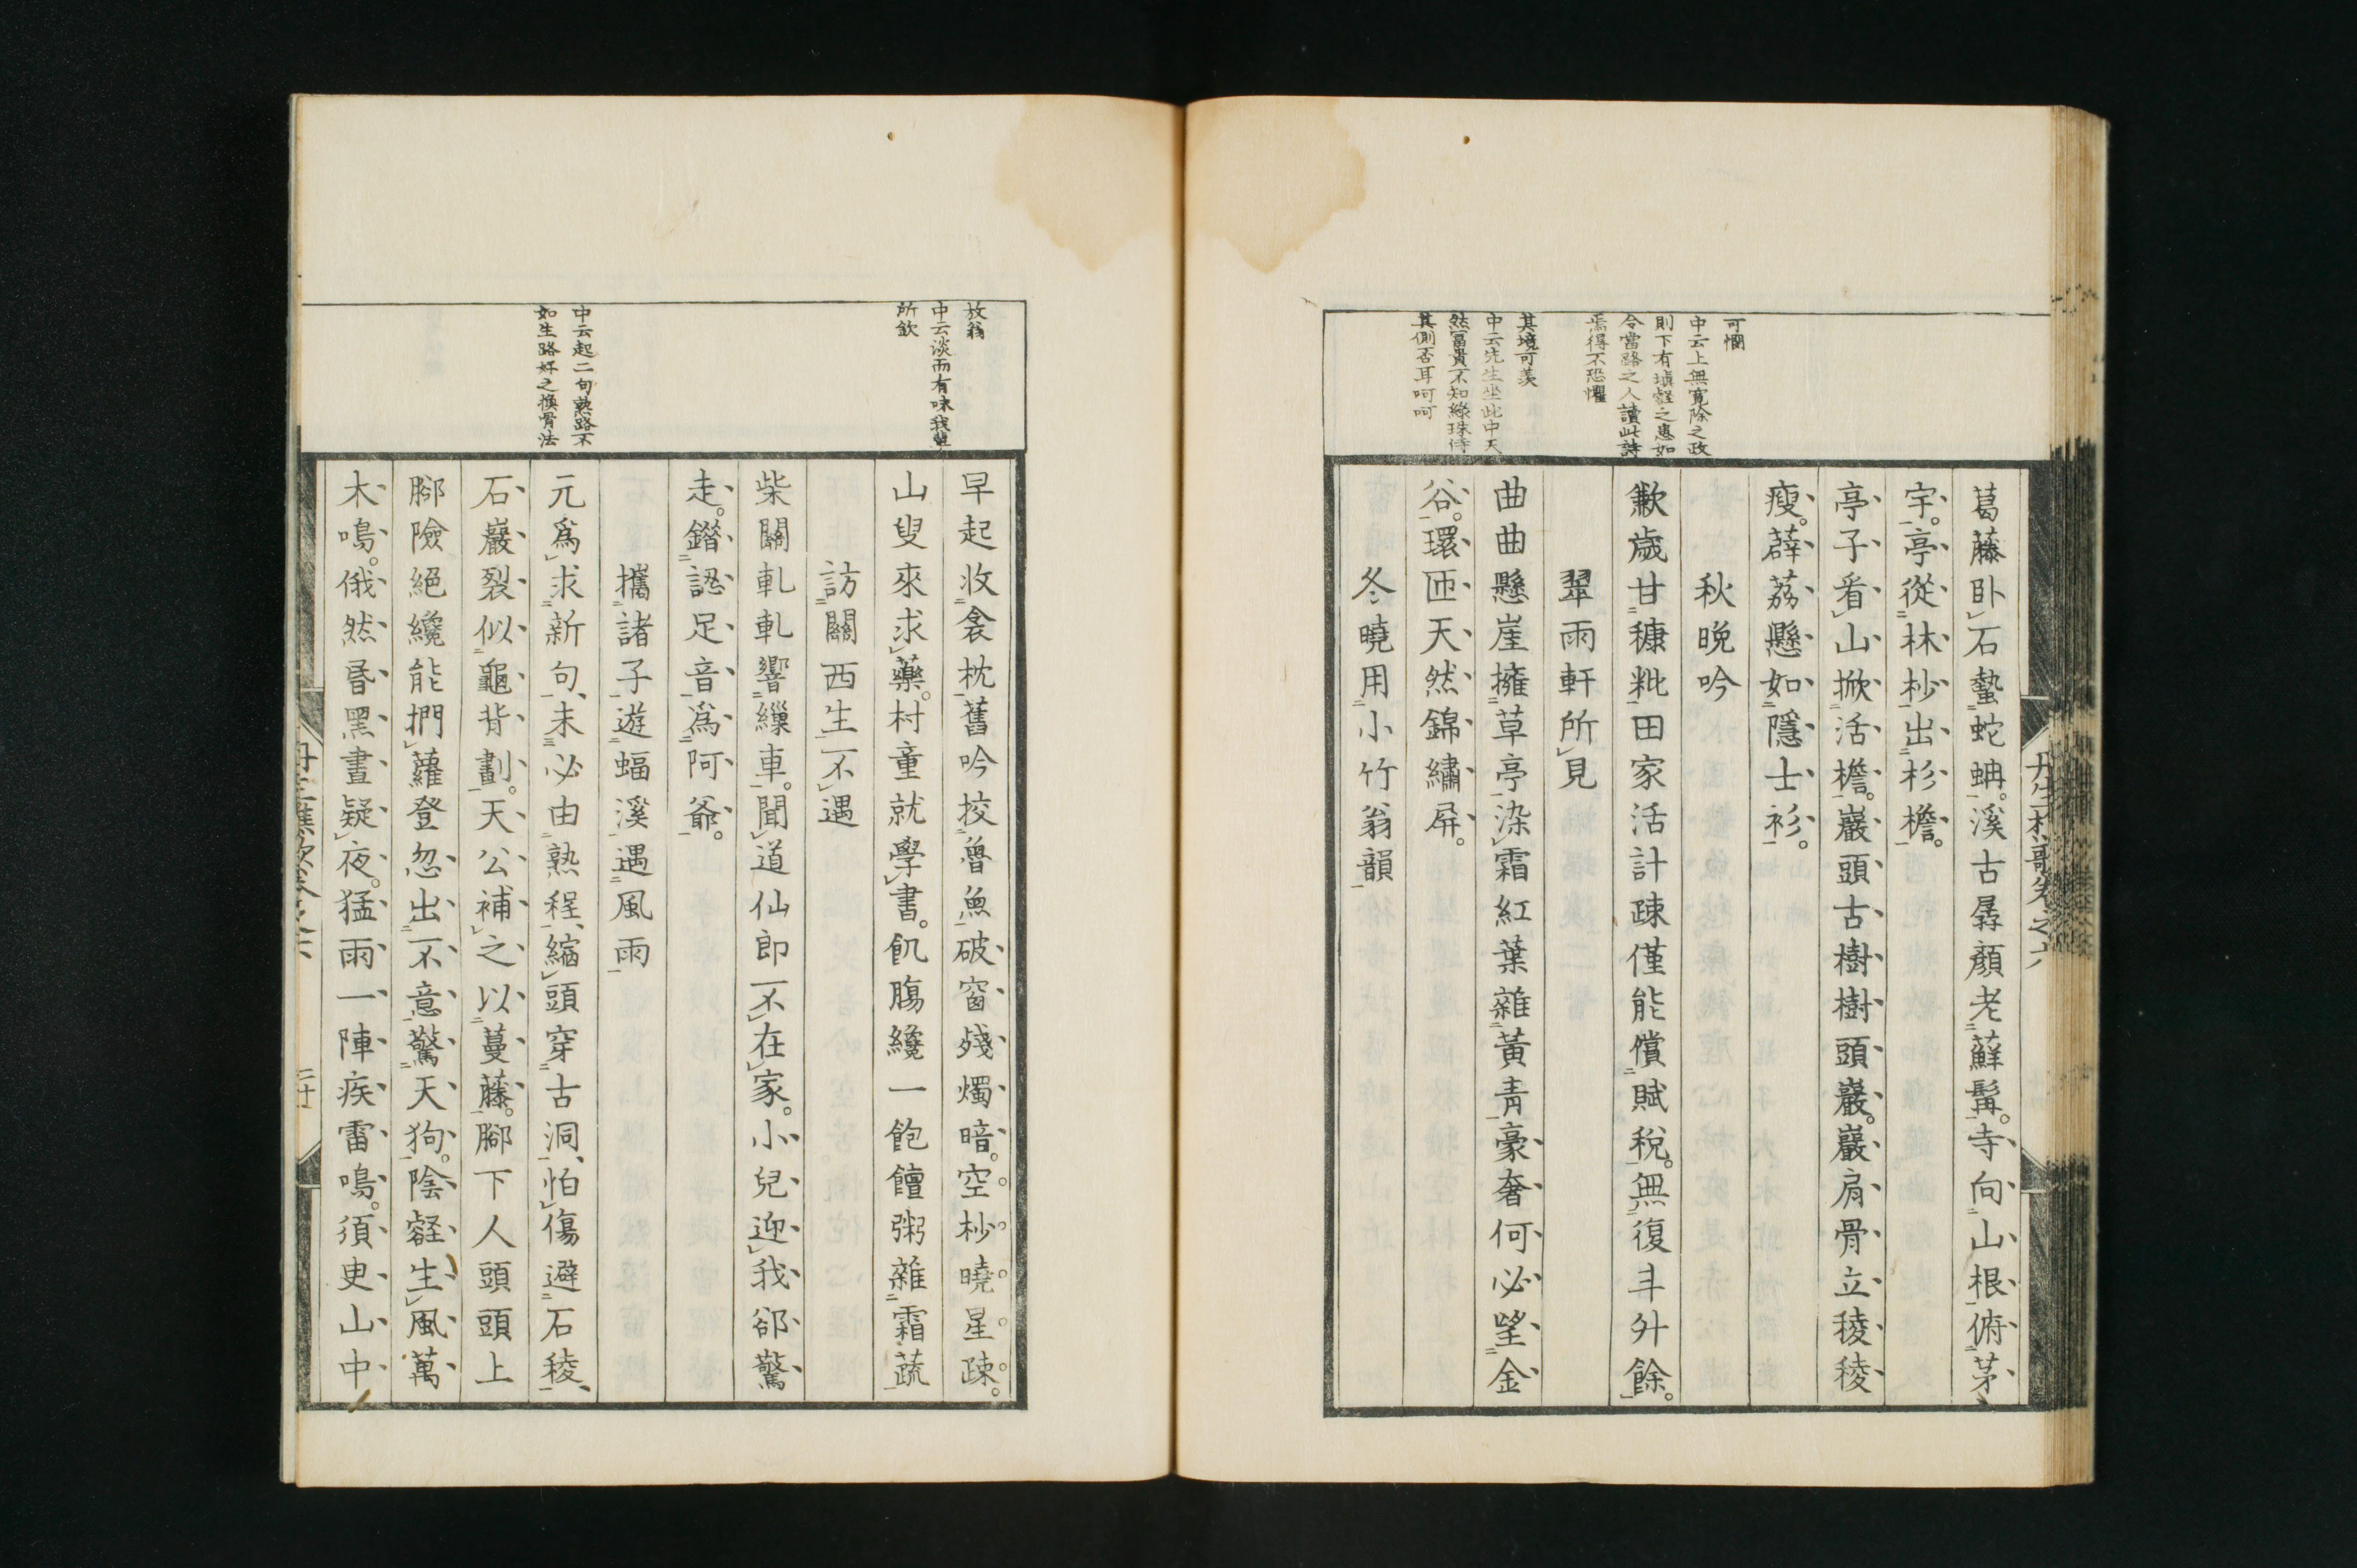 可憫
中云上無寛除之政
則下有墳壑之患如
令當路之人讀此詩
焉得不恐懼
其境可羨
中云先生坐此中天
然冨貴不知緑珠侍
其側否耳呵呵
葛藤卧石蟄蛇蚺溪古孱顏老蘚髯寺向山根俯茅
宇亭從林杪出杉檐
亭子看山掀活檐巖頭古樹樹頭巖巖肩骨立稜稜
瘦薜荔懸如隱士衫
秋晚吟
歉歳甘糠粃田家活計疎僅能償賦税無復丰外餘
翠雨軒所見
曲曲懸崖擁草亭染霜紅葉雜黃青豪奢何必望金
谷環匝天然錦繡屏
冬曉用小竹翁韻
放翁
中云淡而有味我輩
所欽
中云起二句熟路不
如生路好之換骨法
早起收衾枕舊吟挍魯魚破窗殘燭暗空杪曉星疎
山叟來求藥村童就學書飢膓纔一飽饘粥雜霜蔬
訪關西生不遇
柴關軋軋響繅車聞道仙郎不在家小兒迎我郤驚
走錯認足音爲阿爺
攜諸子遊蝠溪遇風雨
元爲求新句未必由熟程縮頭穿古洞怕傷避石稜
石巖裂似龜背劃天公補之以蔓藤腳下人頭頭上
腳險絕纔能捫蘿登忽出不意驚天狗陰壑生風萬
木鳴俄然昏黑晝疑夜猛雨一陣疾雷鳴須臾山中
二十